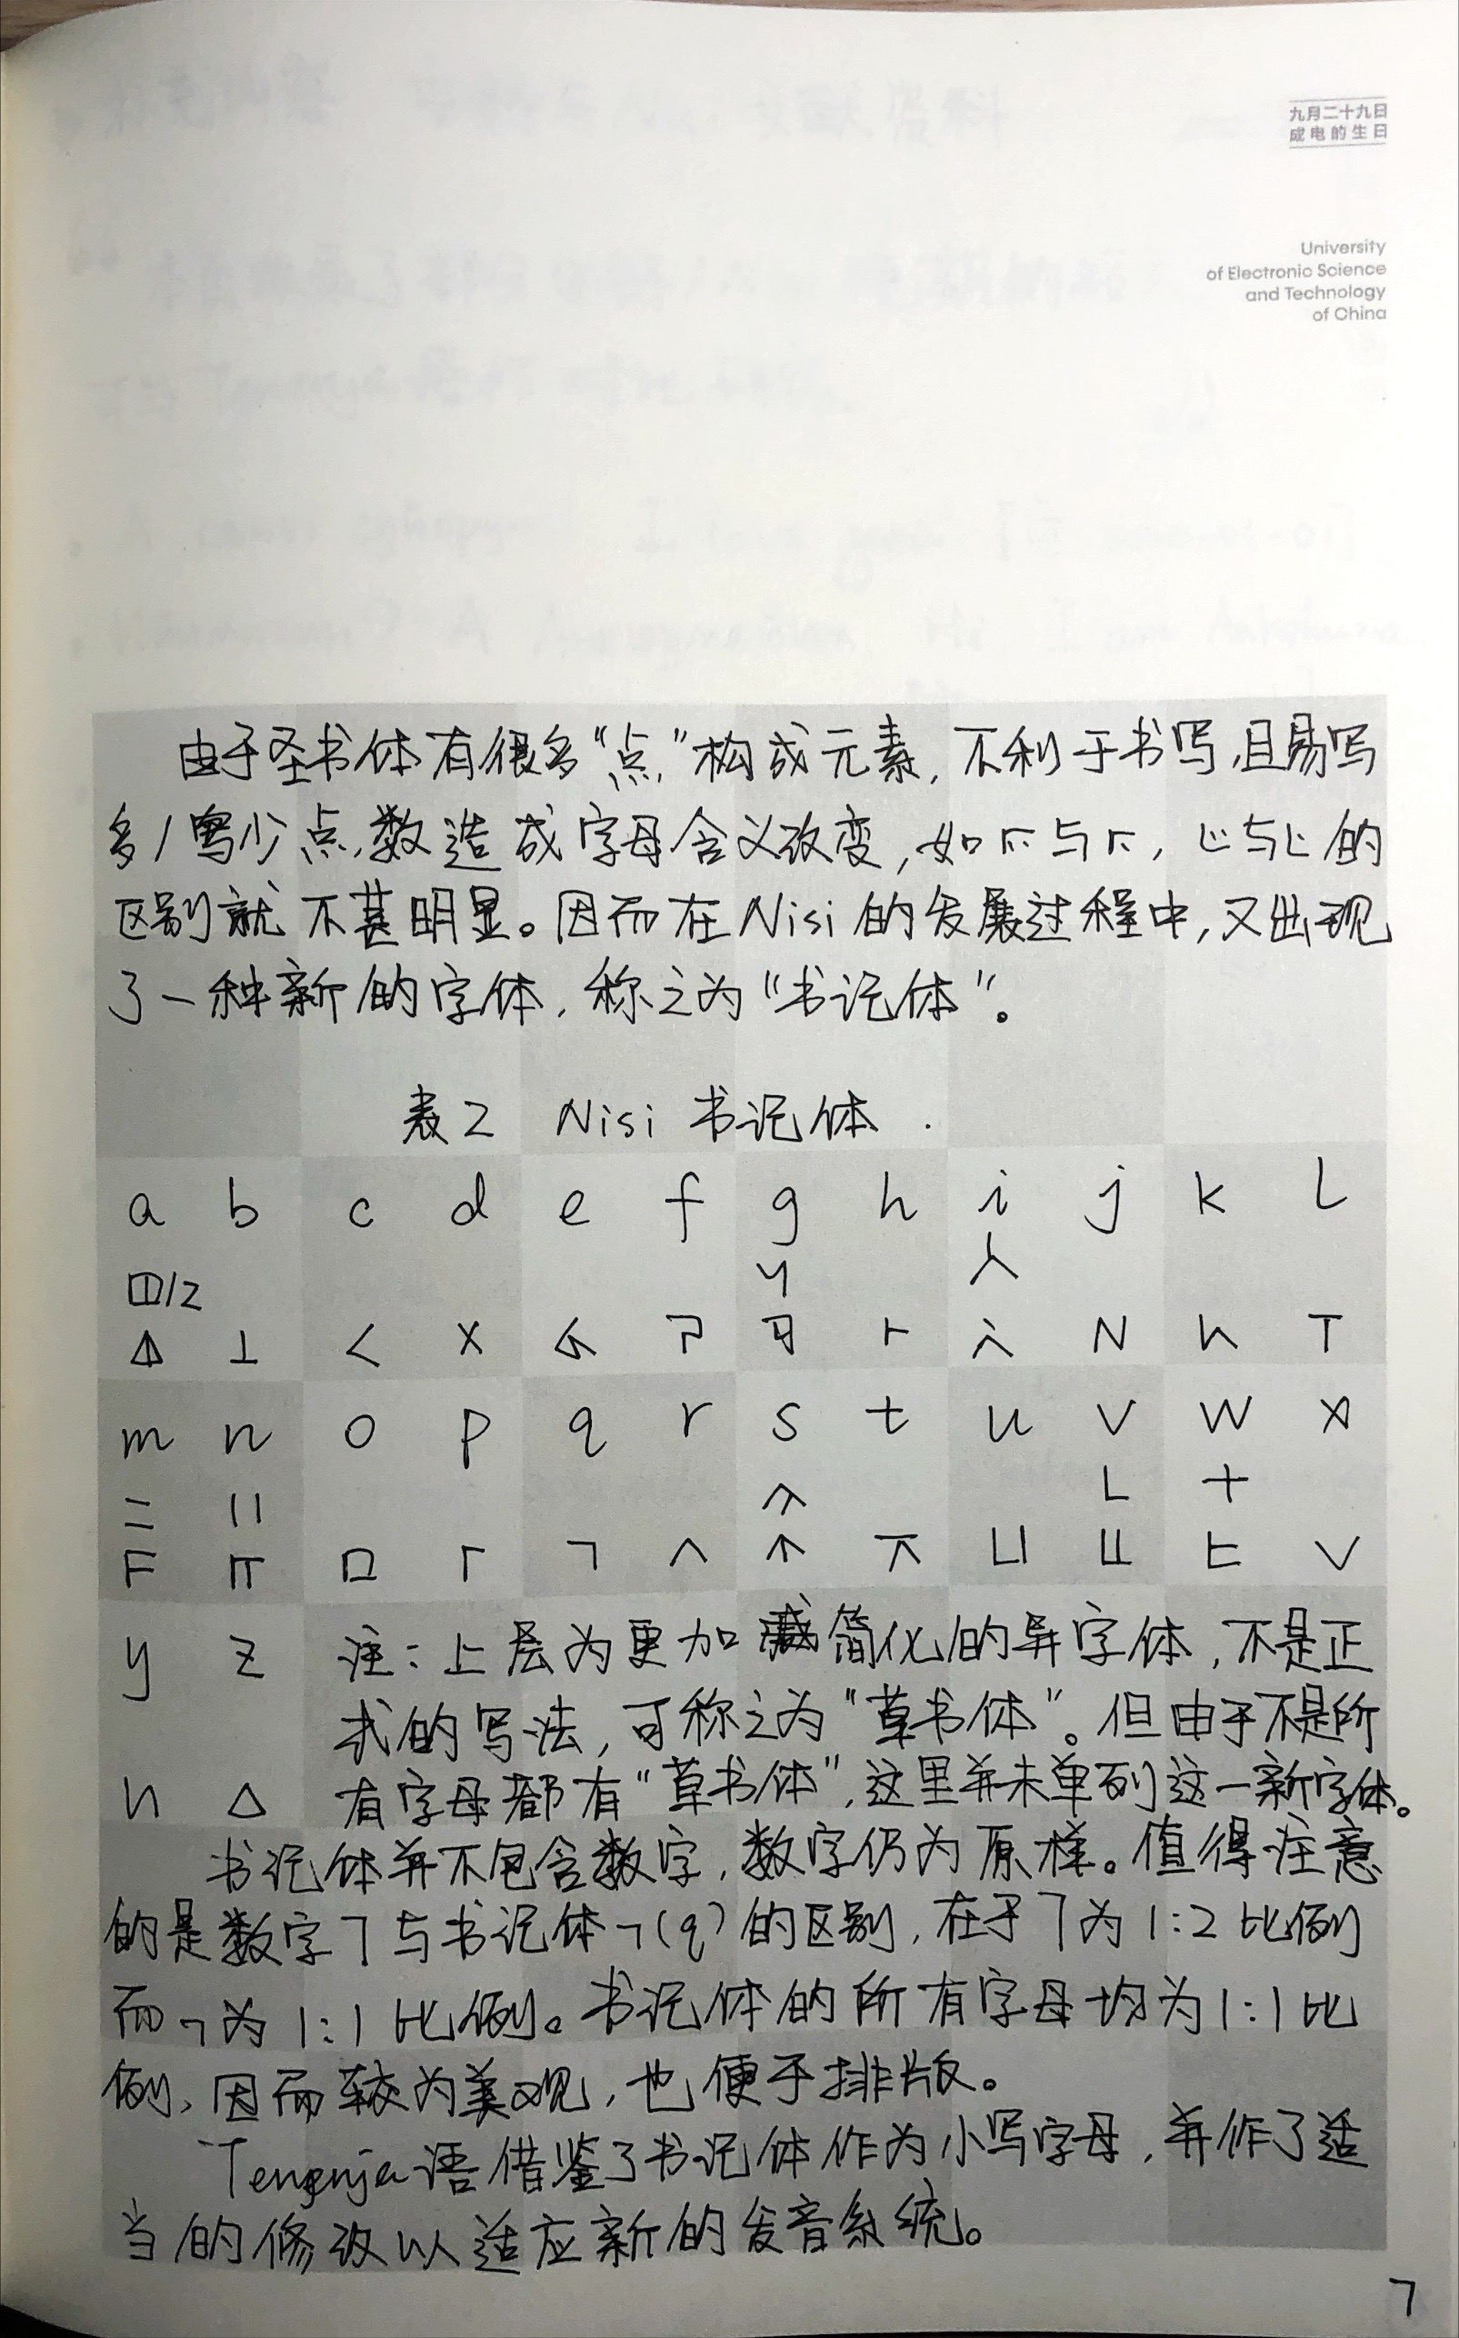 九月二十九日
成电的生日
University
of Electronic Science
and Technology
of China
由于圣书体有很多“点”构成元素，不利于书写，且易写
多/写少点数造成字母含义改变，如 与 ， 与 的
区别就不甚明显。因而在Nisi的发展过程中，又出现
了一种新的字体，称之为“书记体”。
表2 Nisi 书记体
a b c d e f g h i j k l
m n o p q r s t u v w x
y z 注：上层为更加简化的异字体，不是正
式的写法，可称之为“草书体”。但由于不是所
有字母都有“草书体”，这里并未单列这一新字体。
书记体并不包含数字，数字仍为原样。值得注意
的是数字7与书记体¬(q)的区别，在于7为1:2比例
而¬为1:1比例。书记体的所有字母均为1:1比
例，因而较为美观，也便于排版。
Tengenja语借鉴了书记体作为小写字母，并作了适
当的修改以适应新的发音系统。
7